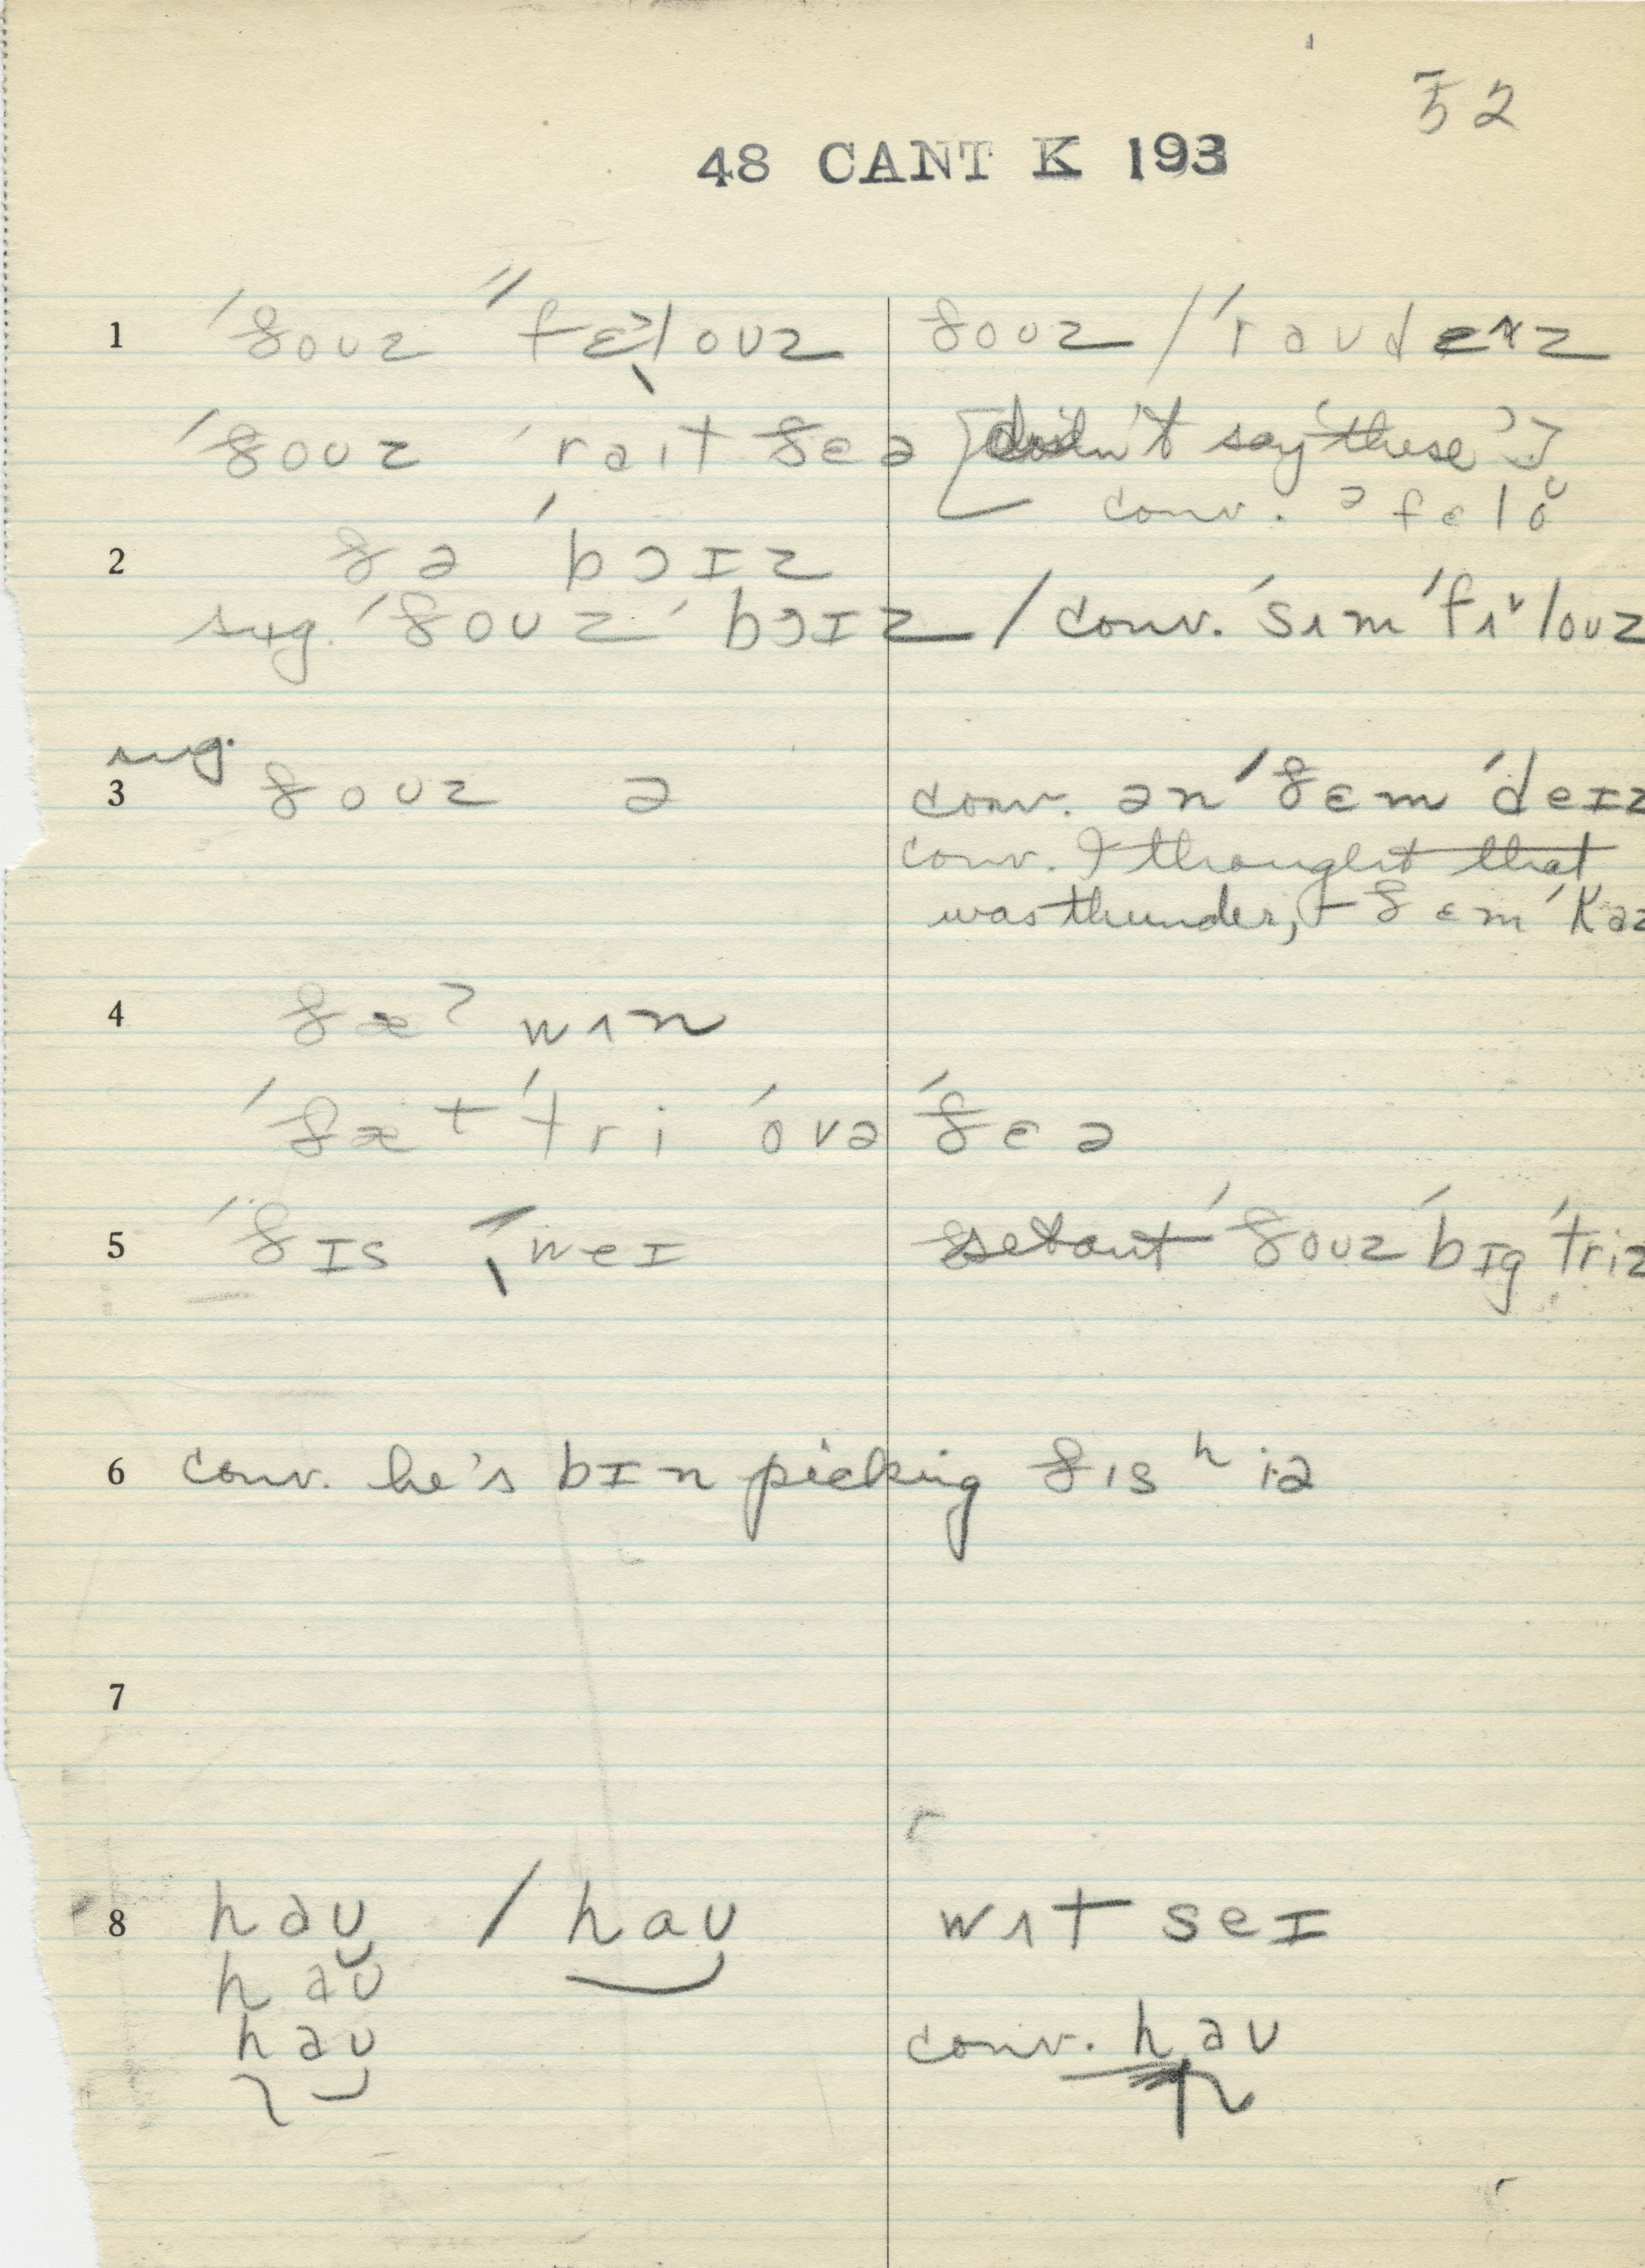 52
48 CANT K 193
1 ˈðouz ˈˈfɛˀlouz ðouz / ˈraudɛʌz
ˈðouz ˈrait ðeə [didn't say 'these']
conv. ə felŏ
2 ðə ˈbɔɪz
sug. ˈðouz ˈbɔɪz / conv. ˈsʌm ˈfɪˇlouz
sug.
3 ðouz ə conv. ən ˈðɛm ˈdeɪz
conv. I thought that
was thunder, – ðɛm ˈkəz
4 ðæˀ wʌn
ˈðæt ˈtri ˈovə ˈðɛə
5 ˈðɪs ˈweɪ set out ˈðouz ˈbɪg ˈtriz
6 conv. he's bɪn picking ðɪs ʰiə
7
8 hau / hau wʌt seɪ
hau
hau conv. hau